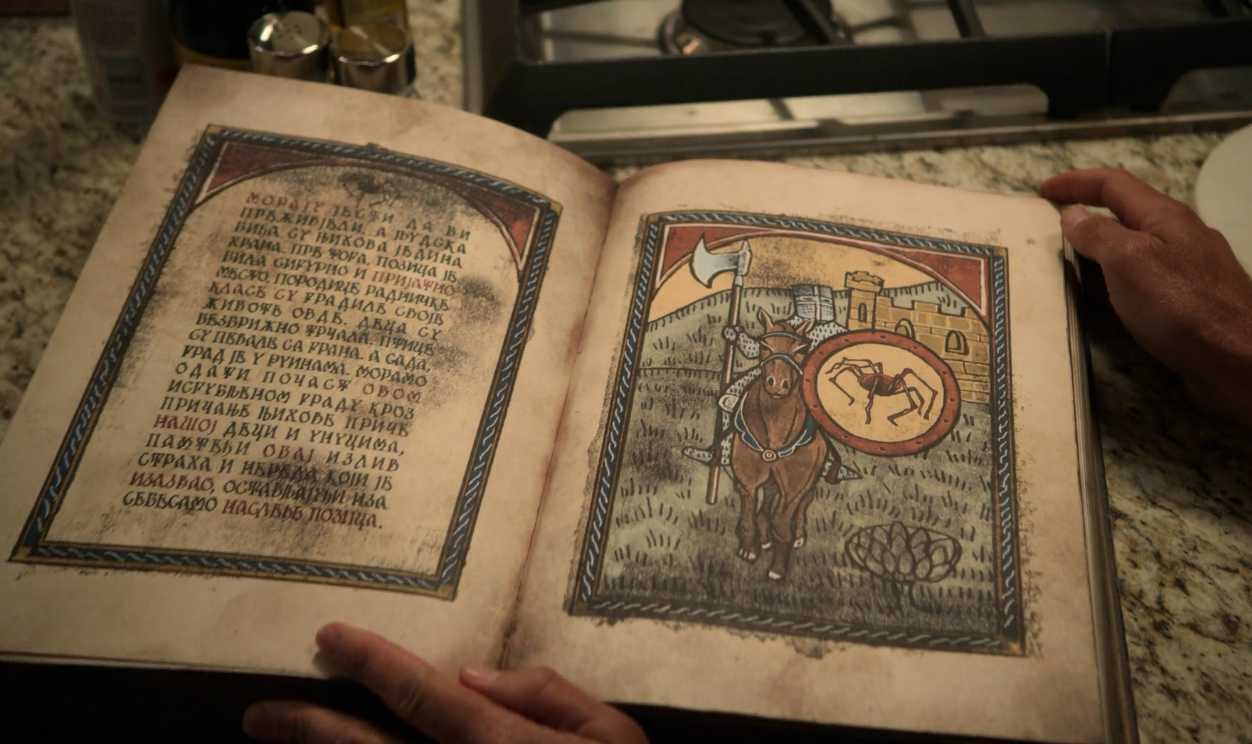 МОРАЈУ ЈЕСТИ ДА БИ
ПРЕЖИВЈЕЛИ. А ЉУДСКА
БИЋА СУ ЊИХОВА ЈЕДИНА
ХРАНА. ПРЕ ТОГА, ПОЗИЦА ЈЕ
БИЛА СИГУРНО И ПРИЈАТНО
МЕСТО. ПОРОДИЦЕ РАДНИЧКЕ
КЛАСЕ СУ ГРАДИЛЕ СВОЈЕ
ЖИВОТЕ ОВДЕ. ДЕЦА СУ
БЕЗБРИЖНО ТРЧАЛА. ПТИЦЕ
СУ ПЕВАЛЕ СА ГРАНА. А САДА,
ГРАД ЈЕ У РУИНАМА. МОРАМО
ОДАТИ ПОЧАСТ ОВОМ
ИЗГУБЉЕНОМ ГРАДУ КРОЗ
ПРИЧАЊЕ ЊИХОВЕ ПРИЧЕ
НАШОЈ ДЕЦИ И УНУЦИМА,
ПАМТЕЋИ ОВАЈ ИЗЛИВ
СТРАХА И НЕРЕДА КОЈИ ЈЕ
ИЗАЗВАО, ОСТАВЉАЈУЋИ ИЗА
СЕБЕ САМО НАСЛЕЂЕ ПОЗИЦА.